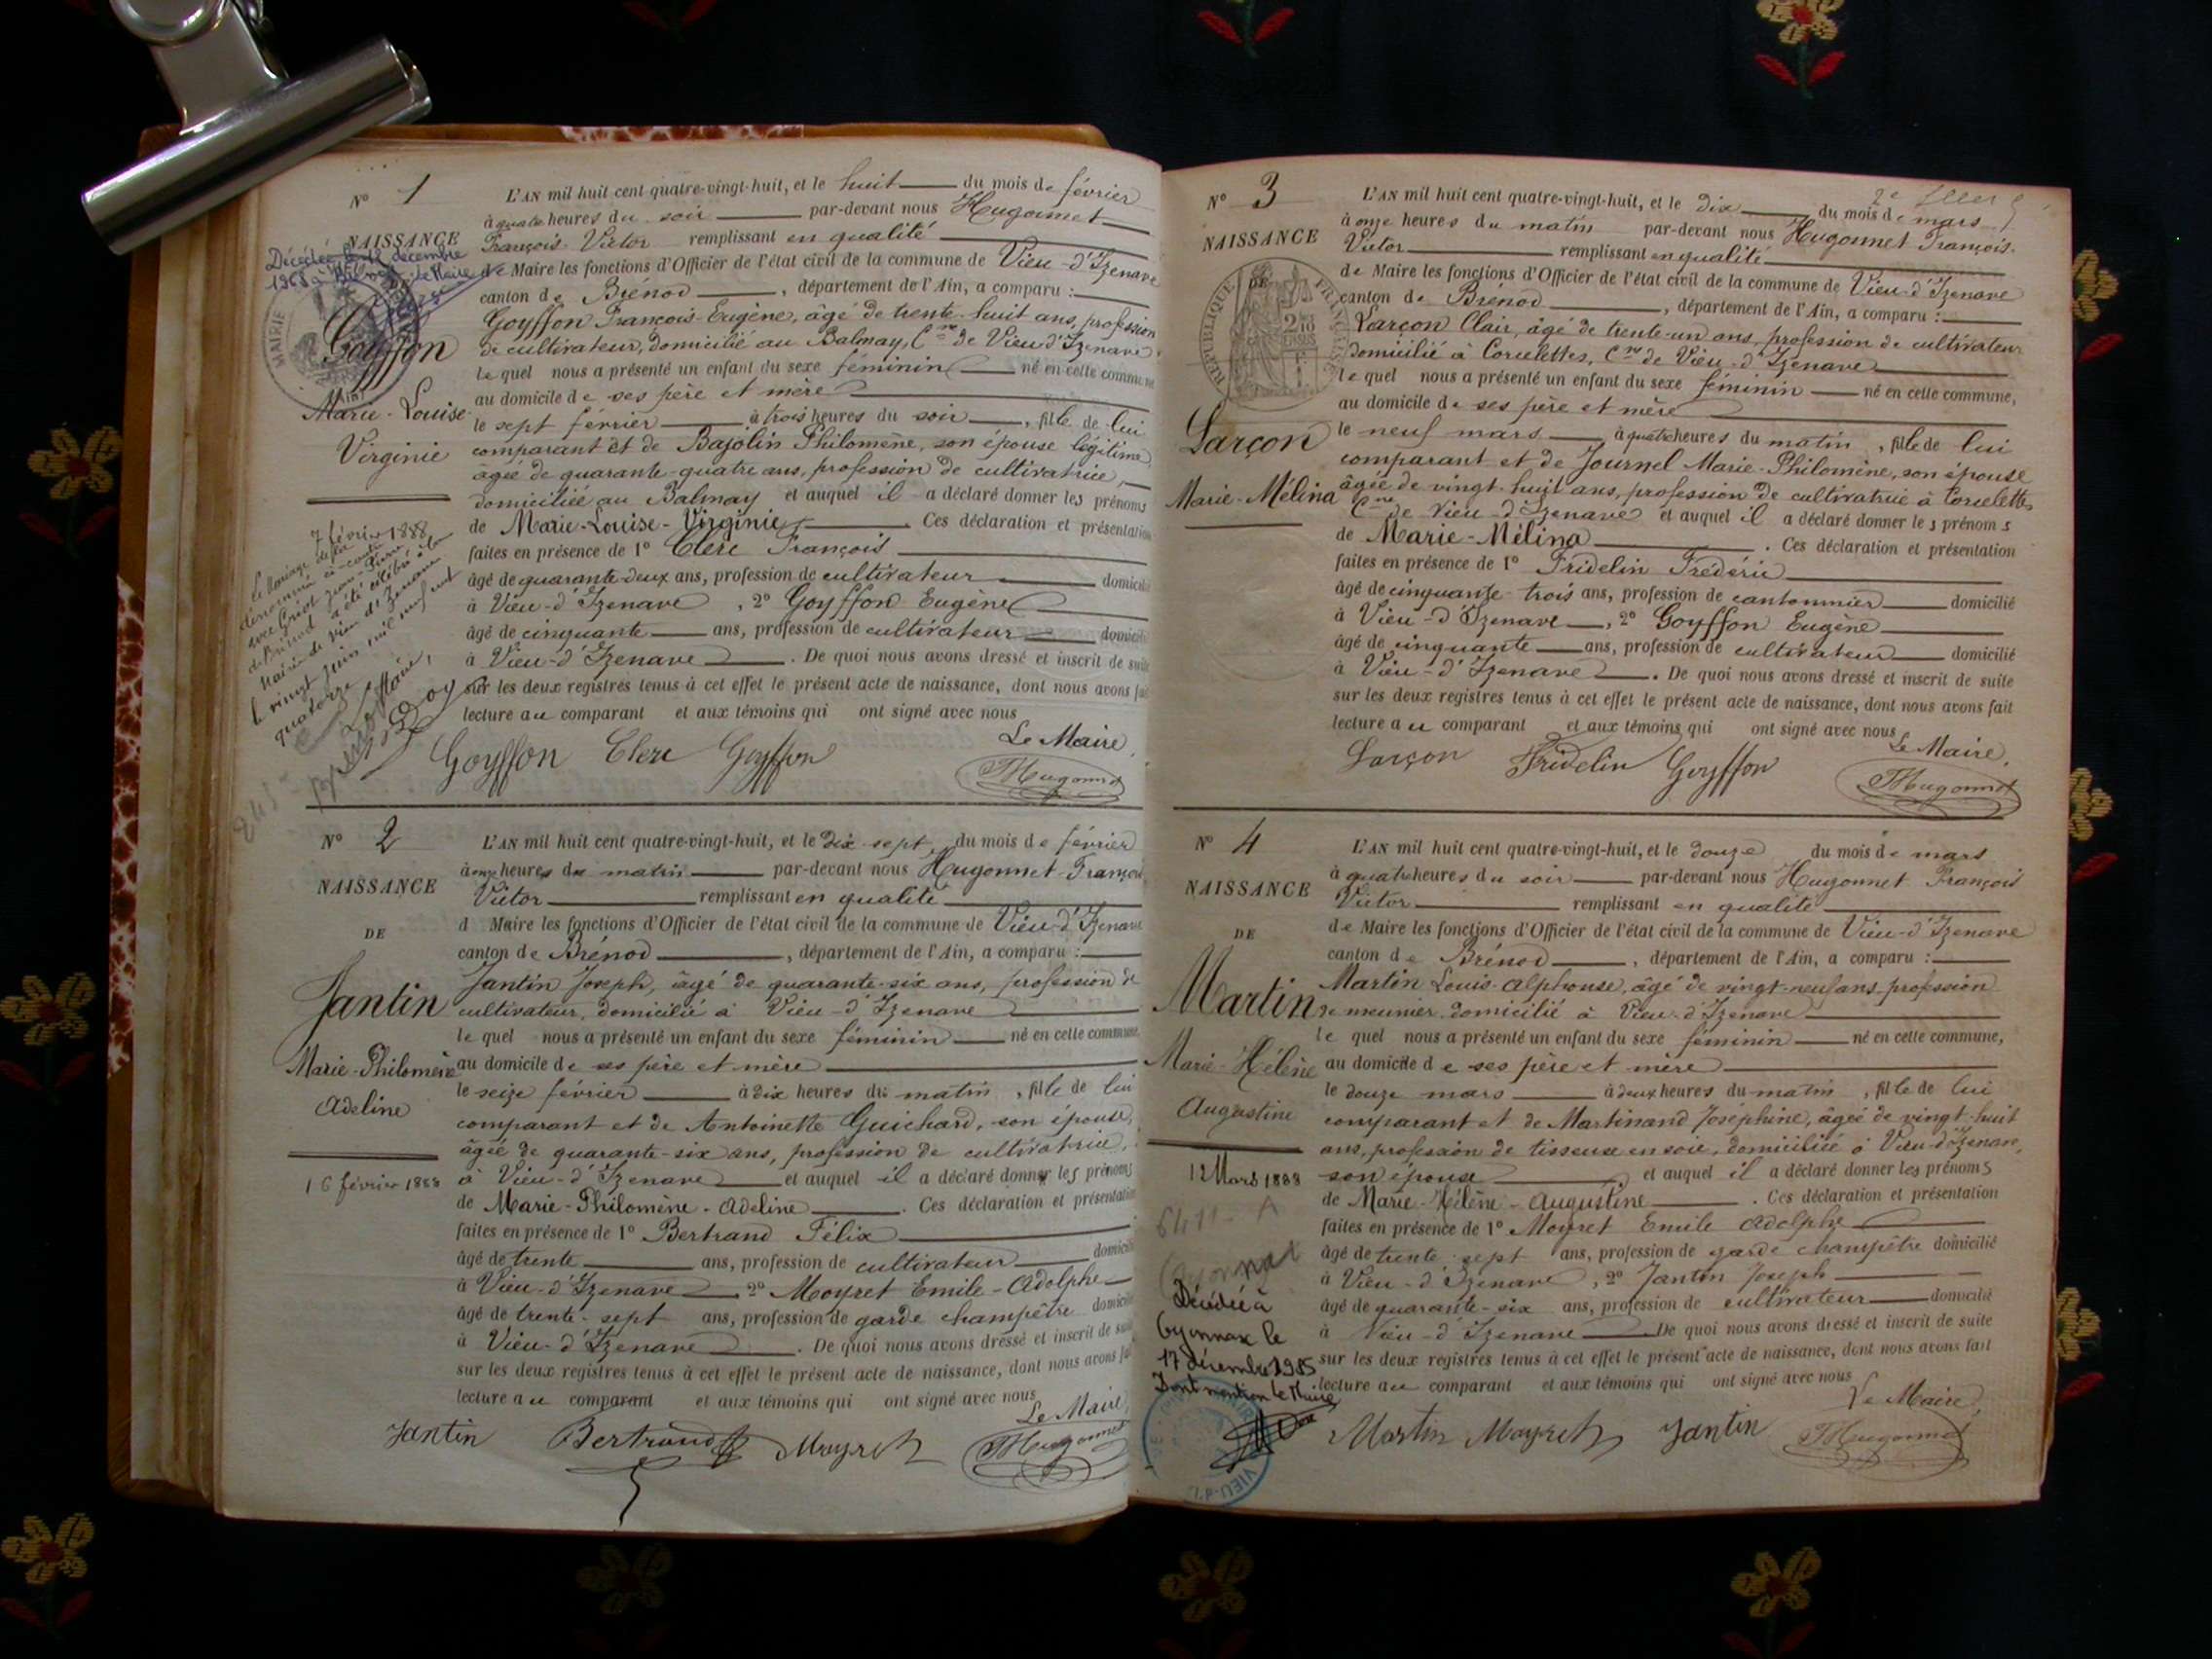 N° 1
NAISSANCE
Décédée le 12 décembre
1968 à
MAIRIE
Goyffon
Marie-Louise
Virginie
7 février 1888
Le Mariage de la
dénommée ci-contre
avec
de Brénod a été célébré à la
Mairie de Vieu d'Izenave
le vingt juin mil neuf cent
quatorze
L'AN mil huit cent quatre-vingt-huit, et le huit du mois de février
à quatre heures du soir par-devant nous Hugonnet
François-Victor remplissant en qualité
de Maire les fonctions d'Officier de l'état civil de la commune de Vieu-d'Izenave
canton de Brénod, département de l'Ain, a comparu :
Goyffon François-Eugène, âgé de trente-huit ans, profession
de cultivateur, domicilié au Balmay, Cne de Vieu d'Izenave
lequel nous a présenté un enfant du sexe féminin né en cette commune
au domicile de ses père et mère
le sept février à trois heures du soir, fille de lui
comparant et de Bajolin Philomène, son épouse légitime,
âgée de quarante-quatre ans, profession de cultivatrice,
domiciliée au Balmay et auquel il a déclaré donner les prénoms
de Marie-Louise-Virginie. Ces déclaration et présentation
faites en présence de 1° Clerc François
âgé de quarante-deux ans, profession de cultivateur domicilié
à Vieu-d'Izenave, 2° Goyffon Eugène
âgé de cinquante ans, profession de cultivateur domicilié
à Vieu-d'Izenave. De quoi nous avons dressé et inscrit de suite
sur les deux registres tenus à cet effet le présent acte de naissance, dont nous avons fait
lecture au comparant et aux témoins qui ont signé avec nous
Le Maire,
Goyffon Clerc Goyffon Hugonnet
N° 2
NAISSANCE
DE
Jantin
Marie-Philomène
Adeline
16 février 1888
L'AN mil huit cent quatre-vingt-huit, et le dix-sept du mois de février
à onze heures du matin par-devant nous Hugonnet-François
Victor remplissant en qualité
d Maire les fonctions d'Officier de l'état civil de la commune de Vieu-d'Izenave
canton de Brénod, département de l'Ain, a comparu :
Jantin Joseph, âgé de quarante-six ans, profession de
cultivateur, domicilié à Vieu-d'Izenave
lequel nous a présenté un enfant du sexe féminin né en cette commune
au domicile de ses père et mère
le seize février à dix heures du matin, fille de lui
comparant et de Antoinette Guichard, son épouse,
âgée de quarante-six ans, profession de cultivatrice,
à Vieu-d'Izenave et auquel il a déclaré donner les prénoms
de Marie-Philomène-Adeline. Ces déclaration et présentation
faites en présence de 1° Bertrand Félix
âgé de trente ans, profession de cultivateur domicilié
à Vieu-d'Izenave 2° Moyret Emile-Adolphe
âgé de trente-sept ans, profession de garde champêtre domicilié
à Vieu-d'Izenave. De quoi nous avons dressé et inscrit de suite
sur les deux registres tenus à cet effet le présent acte de naissance, dont nous avons fait
lecture au comparant et aux témoins qui ont signé avec nous
Le Maire,
Jantin Bertrand Moyret Hugonnet
N° 3
NAISSANCE
DE
RÉPUBLIQUE FRANÇAISE
Larçon
Marie-Mélina
L'AN mil huit cent quatre-vingt-huit, et le dix du mois de mars
à onze heures du matin par-devant nous Hugonnet François-
Victor remplissant en qualité
de Maire les fonctions d'Officier de l'état civil de la commune de Vieu-d'Izenave
canton de Brénod, département de l'Ain, a comparu :
Larçon Clair, âgé de trente-un ans, profession de cultivateur
domicilié à Corcelettes, Cne de Vieu-d'Izenave
lequel nous a présenté un enfant du sexe féminin né en cette commune,
au domicile de ses père et mère
le neuf mars à quatre heures du matin, fille de lui
comparant et de Journel Marie-Philomène, son épouse
âgée de vingt-huit ans, profession de cultivatrice à Corcelettes
Cne de Vieu-d'Izenave et auquel il a déclaré donner les prénoms
de Marie-Mélina. Ces déclaration et présentation
faites en présence de 1° Fridelin Frédéric
âgé de cinquante-trois ans, profession de cantonnier domicilié
à Vieu-d'Izenave, 2° Goyffon Eugène
âgé de cinquante ans, profession de cultivateur domicilié
à Vieu-d'Izenave. De quoi nous avons dressé et inscrit de suite
sur les deux registres tenus à cet effet le présent acte de naissance, dont nous avons fait
lecture au comparant et aux témoins qui ont signé avec nous
Le Maire,
Larçon Fridelin Goyffon Hugonnet
N° 4
NAISSANCE
DE
Martin
Marie-Hélène
Augustine
12 Mars 1888
Décédée à
Oyonnax le
17 décembre 1985
Dont mention le Maire
L'AN mil huit cent quatre-vingt-huit, et le douze du mois de mars
à quatre heures du soir par-devant nous Hugonnet François
Victor remplissant en qualité
de Maire les fonctions d'Officier de l'état civil de la commune de Vieu-d'Izenave
canton de Brénod, département de l'Ain, a comparu :
Martin Louis-Alphonse, âgé de vingt-neuf ans profession
de meunier domicilié à Vieu-d'Izenave
le quel nous a présenté un enfant du sexe féminin né en cette commune,
au domicile de ses père et mère
le douze mars à deux heures du matin, fille de lui
comparant et de Martinand Joséphine, âgée de vingt-huit
ans, profession de tisseuse en soie, domiciliée à Vieu-d'Izenave,
son épouse et auquel il a déclaré donner les prénoms
de Marie-Hélène-Augustine. Ces déclaration et présentation
faites en présence de 1° Moyret Emile Adolphe
âgé de trente-sept ans, profession de garde champêtre domicilié
à Vieu-d'Izenave, 2° Jantin Joseph
âgé de quarante-six ans, profession de cultivateur domicilié
à Vieu-d'Izenave De quoi nous avons dressé et inscrit de suite
sur les deux registres tenus à cet effet le présent acte de naissance, dont nous avons fait
lecture au comparant et aux témoins qui ont signé avec nous
Le Maire,
Martin Moyret Jantin Hugonnet